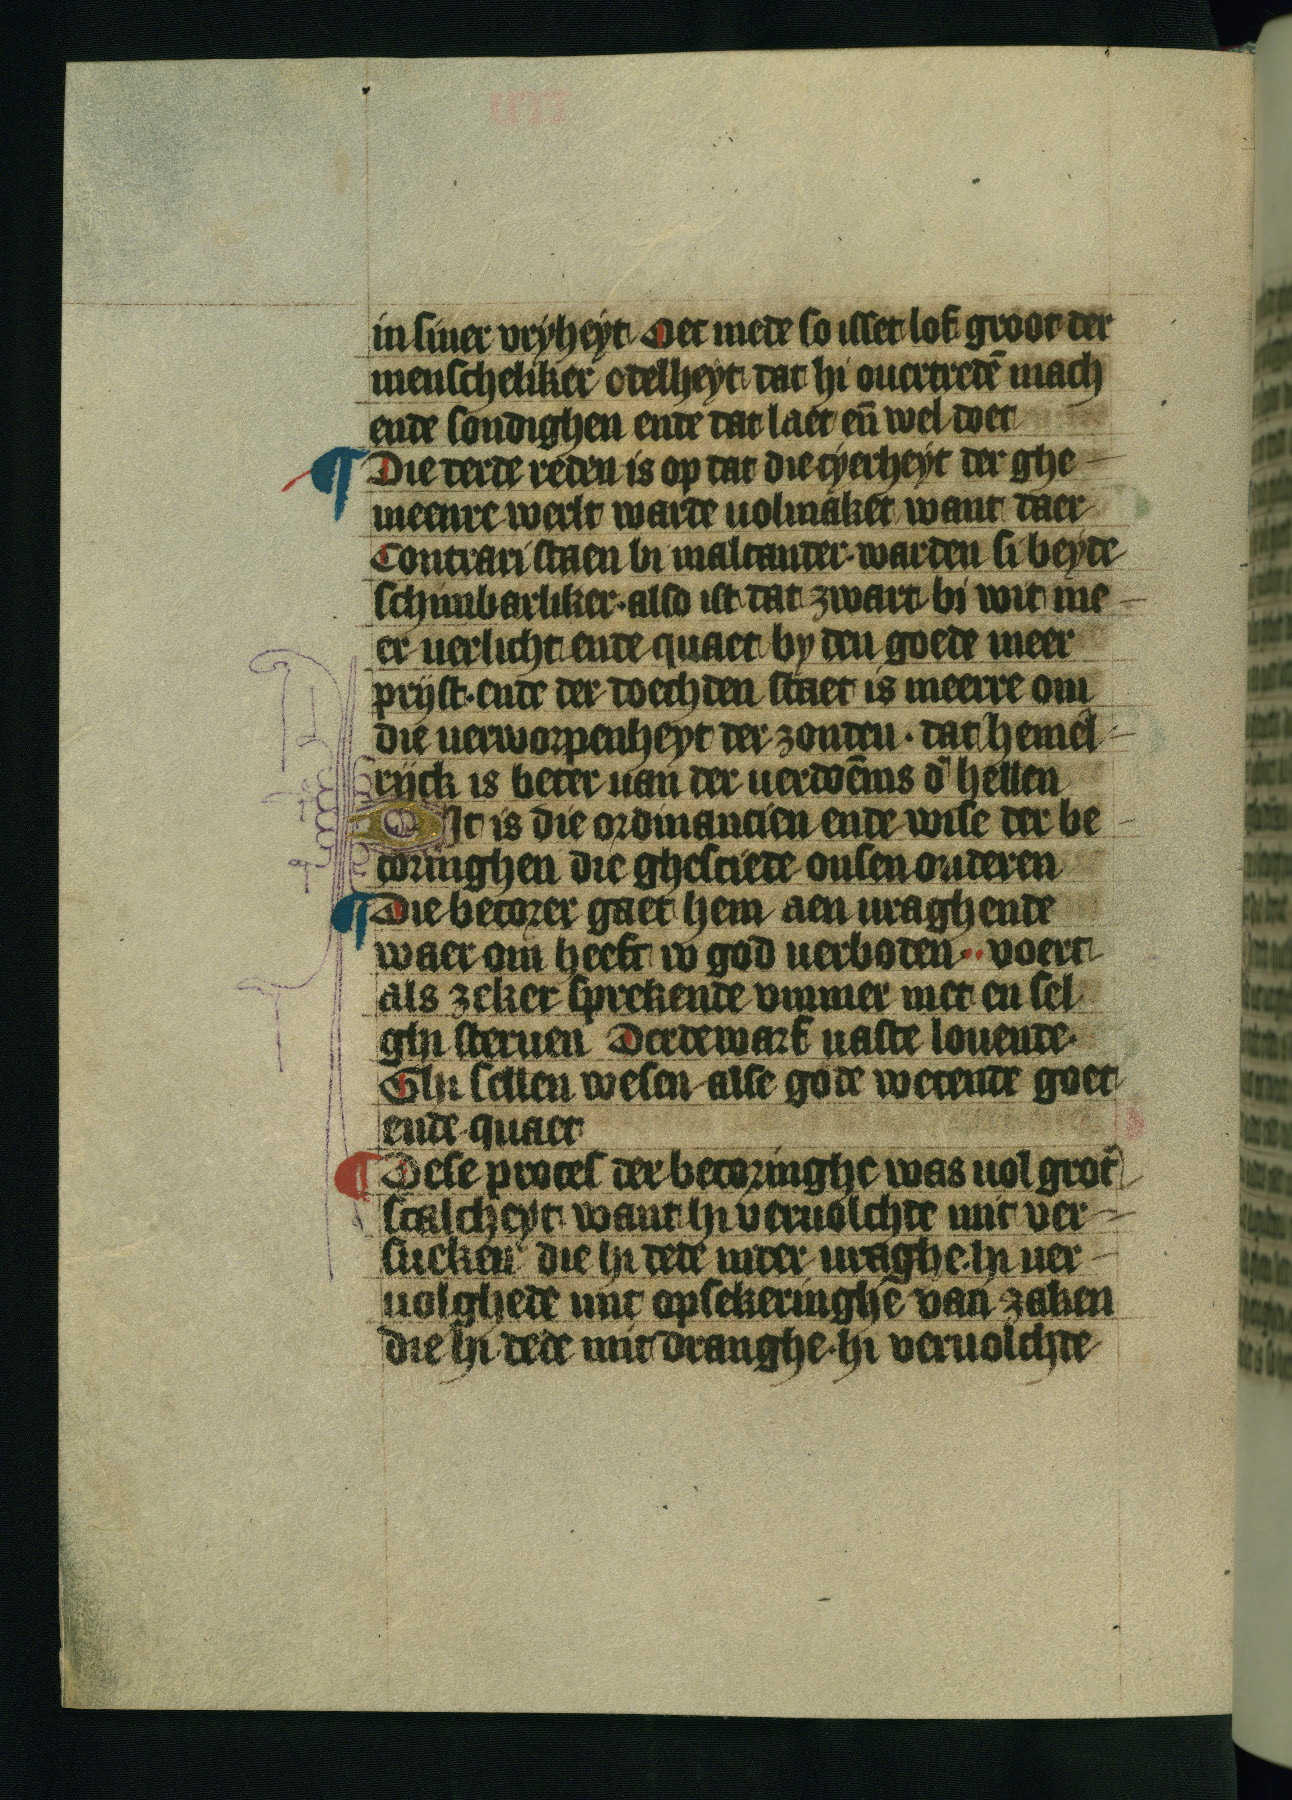 in siner vryheyt Det mede so isset lof groot der
menscheliker edelheyt dat hi ouertredē mach
ende sondighen ende dat laet eñ wel doet
Die derde reden is op dat die cyerheyt der ghe
meenre werlt warde uolmaket want daer
Contrari staen bi malcander·warden si beyde
schinbarliker·also ist dat zwart bi wit me
er uerlicht ende quaet by den goede meer
prijst·ende der doechden staet is meerre om
die uerworpenheyt der zonden·dat hemel
rijck is beter uan der uerdoēnis d' hellen
Dit is die ordinancien ende wise der be
coringhen die ghesciede onsen ouderen
Die becorer gaet hem aen uraghende
waer om heeft w god uerboden·voert
als zeker sprekende vmmer niet en sel
ghi steruen Derdewarf uaste louende·
Ghi sellen wesen alse gode wetende goet
ende quaet
Dese proces der becoringhe was uol grot'
scalcheyt want hi veruolchde mit ver
sucken die hi dede mitter uraghe·hi uer
uolghede mit opsekeringhe van zaken
die hi dede mit dranghe·hi veruolchde